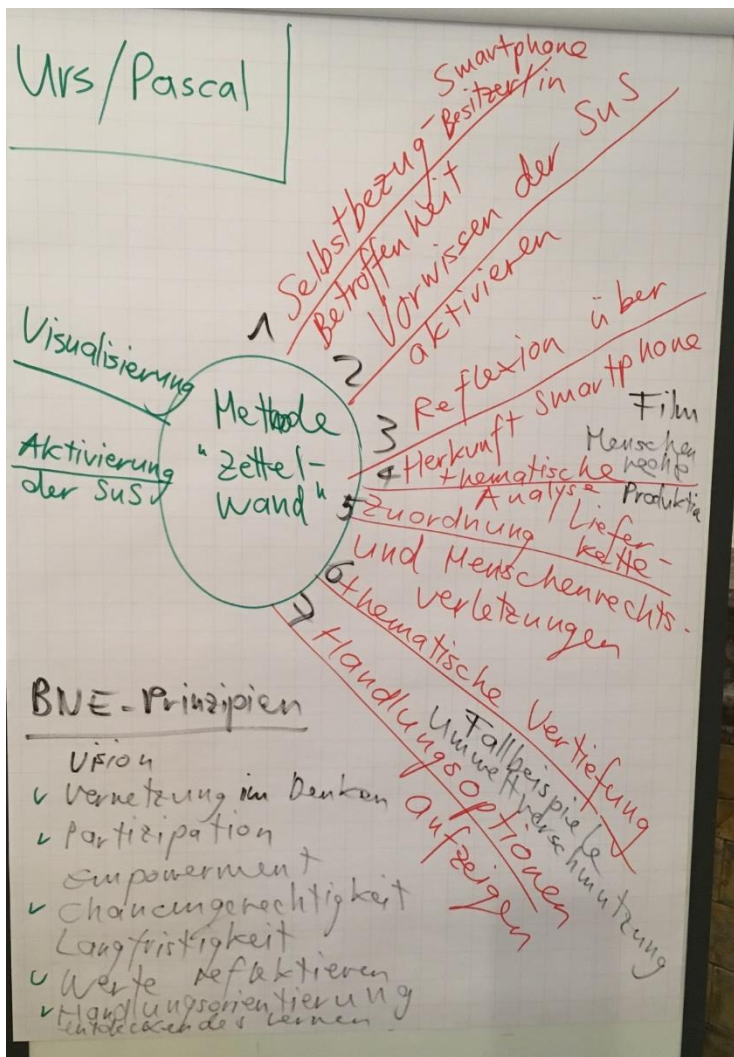 Urs/Pascal
Visualisierung
Aktivierung
der SuS
Methode
"Zettel-
wand"
1
Selbstbezug - Smartphone
Besitzer/in
Betroffenheit
2
Vorwissen der SuS
aktivieren
3
Reflexion über
Herkunft Smartphone
4
thematische
Analyse
Film
Menschen
rechte
Produktio
5
Zuordnung Liefer-
kette
und Menschenrechts-
verletzungen
6
thematische Vertiefung
Fallbeispiele
Umweltverschmutzung
7
Handlungsoptionen
aufzeigen
BNE-Prinzipien
Vision
✓ Vernetzung im Denken
✓ Partizipation
Empowerment
✓ Chancengerechtigkeit
Langfristigkeit
✓ Werte reflektieren
✓ Handlungsorientierung
entdeckendes Lernen